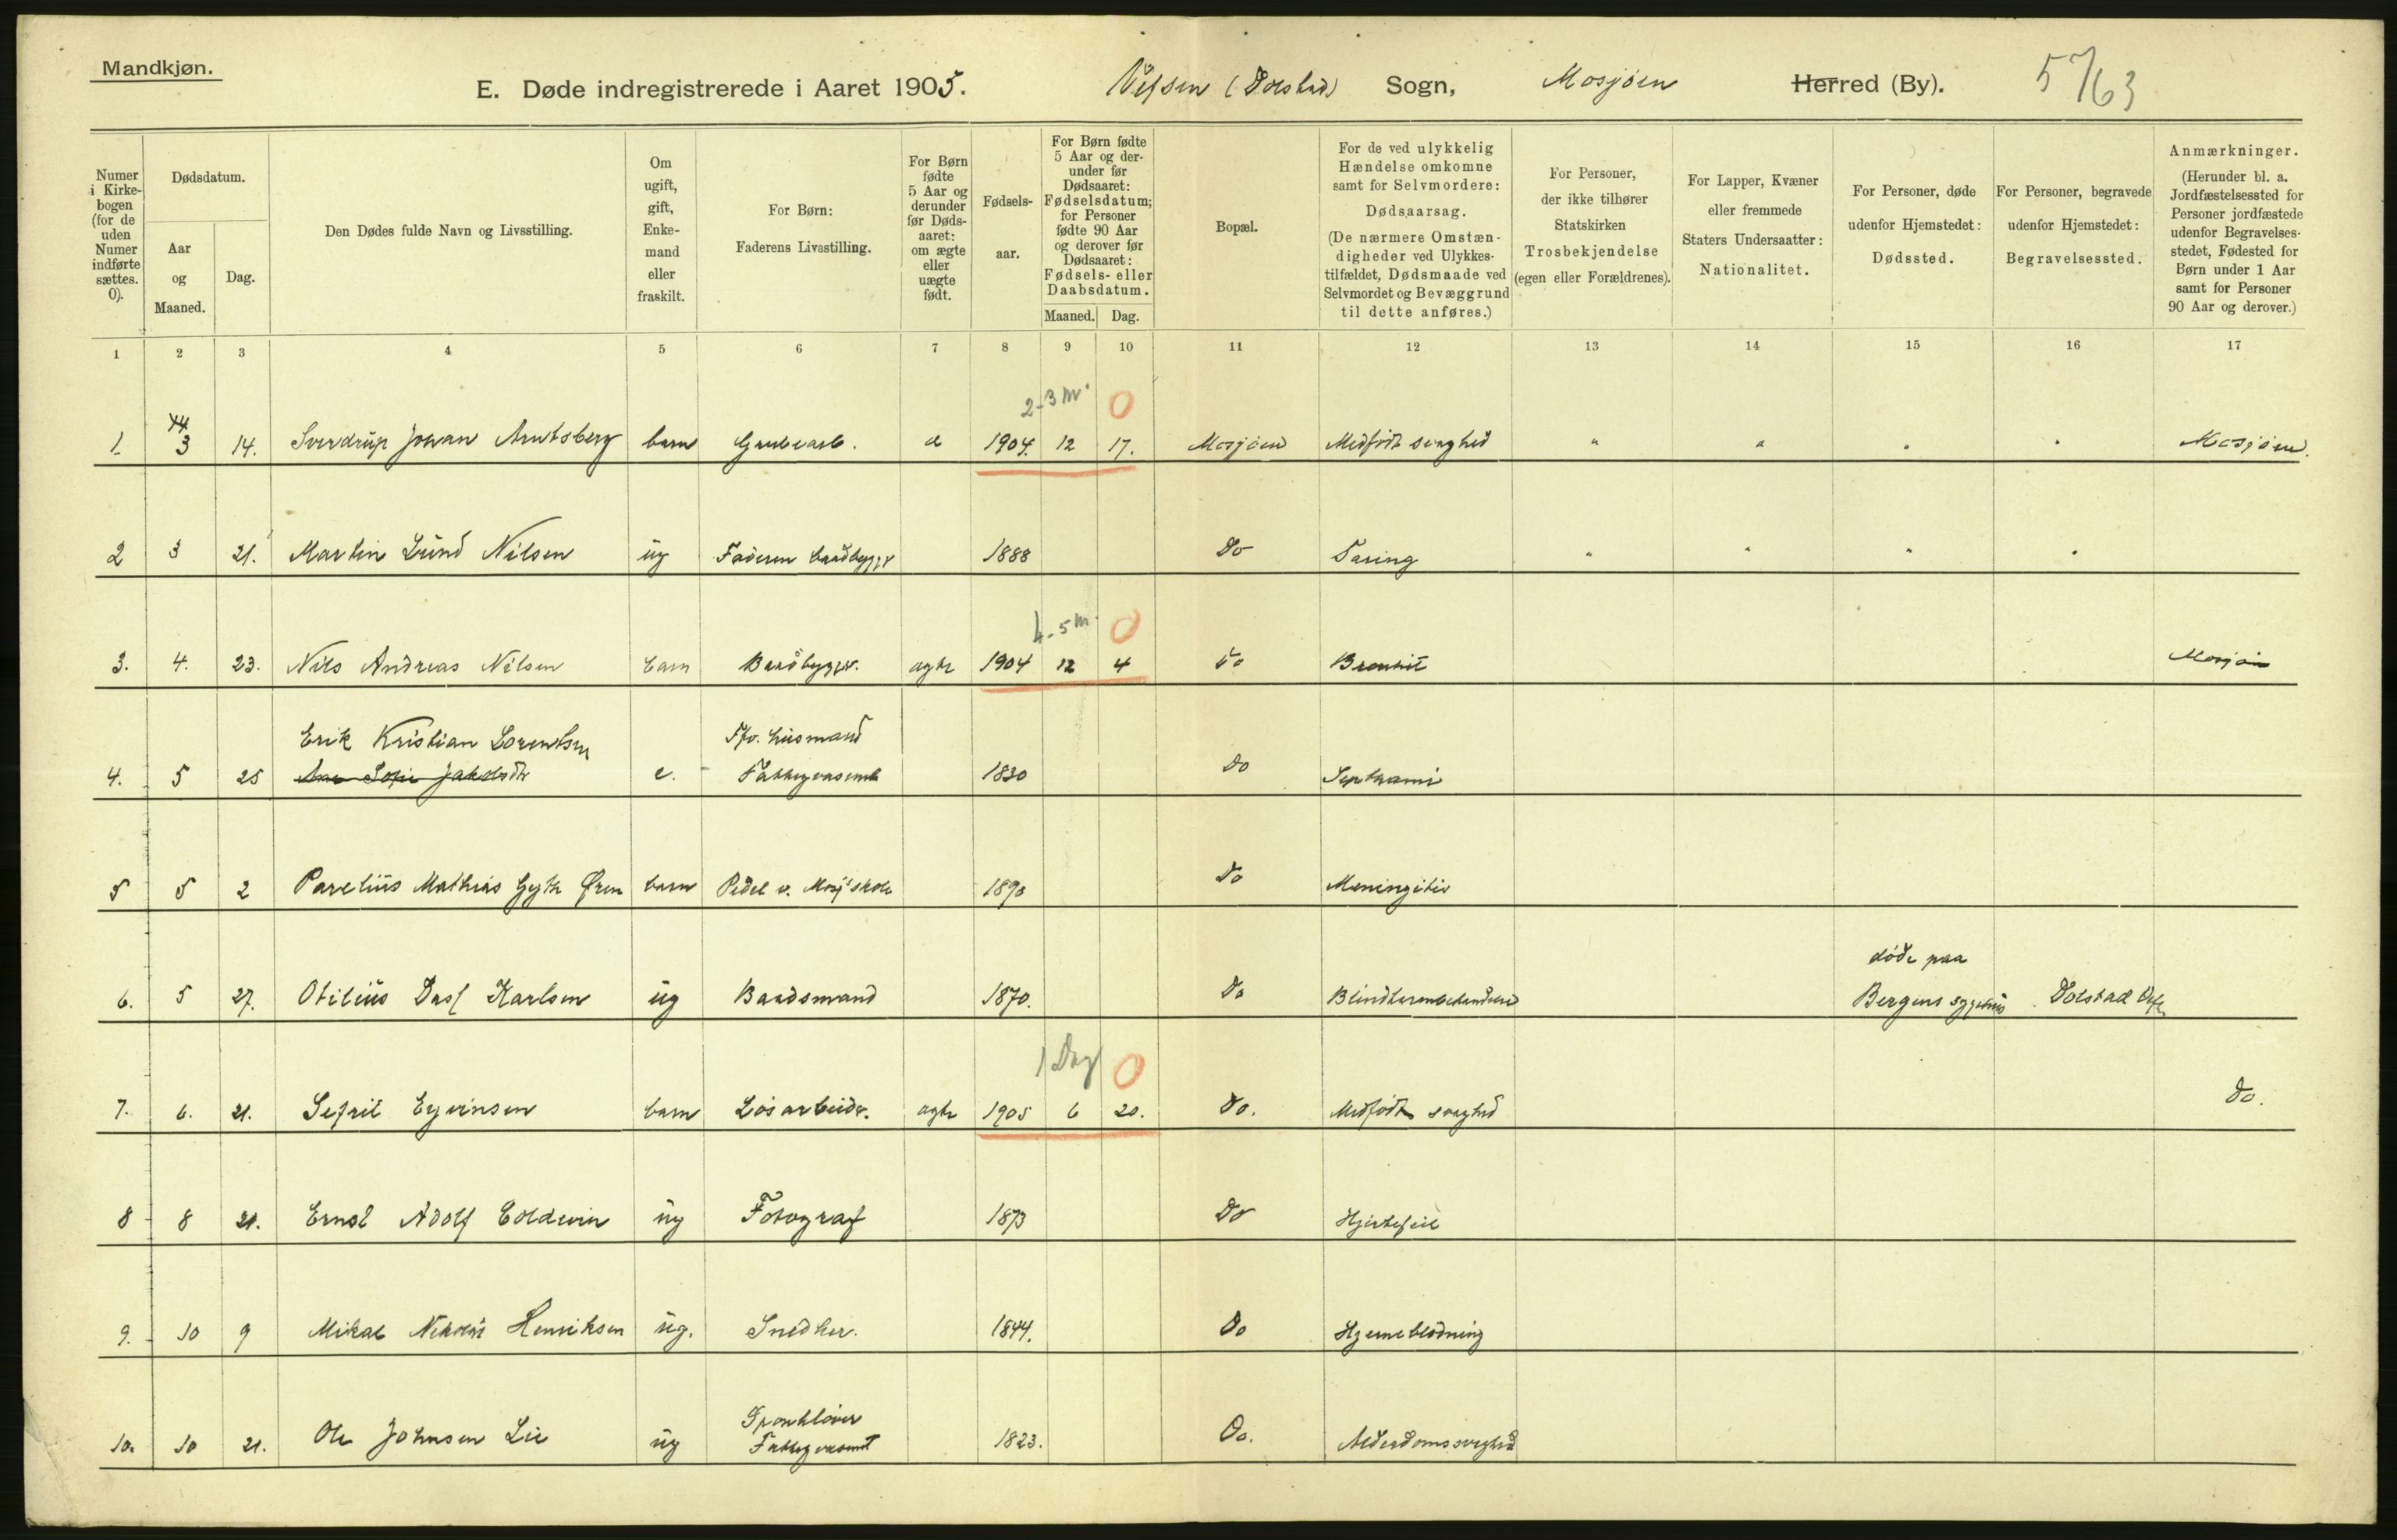 Mandkjøn.
E. Døde indregistrerede i Aaret 1905. Vefsen (Dolstad) Sogn, Mosjøen Herred (By). 5763
Numer i Kirke-bogen (for de uden Numer indførte sættes. 0).
Dødsdatum.
Aar og Maaned.
Dag.
Den Dødes fulde Navn og Livsstilling.
Om ugift, gift, Enke-mand eller fraskilt.
For Børn: Faderens Livsstilling.
For Børn fødte 5 Aar og derunder før Døds-aaret: om ægte eller uægte født.
Fødsels-aar.
For Børn fødte 5 Aar og der-under før Dødsaaret: Fødselsdatum; for Personer fødte 90 Aar og derover før Dødsaaret: Fødsels- eller Daabsdatum.
Maaned. Dag.
Bopæl.
For de ved ulykkelig Hændelse omkomne samt for Selvmordere: Dødsaarsag. (De nærmere Omstæn-digheder ved Ulykkes-tilfældet, Dødsmaade ved Selvmordet og Bevæggrund til dette anføres.)
For Personer, der ikke tilhører Statskirken Trosbekjendelse (egen eller Forældrenes).
For Lapper, Kvæner eller fremmede Staters Undersaatter: Nationalitet.
For Personer, døde udenfor Hjemstedet: Dødssted.
For Personer, begravede udenfor Hjemstedet: Begravelsessted.
Anmærkninger. (Herunder bl. a. Jordfæstelsessted for Personer jordfæstede udenfor Begravelses-stedet, Fødested for Børn under 1 Aar samt for Personer 90 Aar og derover.)
1 2 3 4 5 6 7 8 9 10 11 12 13 14 15 16 17
2-3 M. 0
1 3 14. Sverdrup Johan Arntsberg barn 1904. 12 17. Mosjøen Medfødt svaghed " " " " Mosjøen.
2 3 21. Martin Lund Nilsen ug Faderen baadbygger 1888 Do Tæring " " " "
4-5 M. 0
3. 4. 23. Nils Andreas Nilsen barn Baadbygger. ægte 1904 12 4 Do Bronkit Mosjøen
Erik Kristian Lorentsen Fhv. husmand
4. 5 25 e. Fattigunderst 1830 Do
5 5 2 Parelius Mathias Gyth Øren barn Pedel v. Mosj skole 1890 Do Meningitis
døde paa
6. 5 27. Otilius Karlsen ug Baadsmand 1870. Do Blindtarmbetændelse Bergens sygehus Dolstad Vefsn
1 Dag 0
7. 6. 21. Sefril Eyvinsen barn Løsarbeider. ægte 1905 6 20. Do. Medfødt svaghed Do.
8 8 21. Ernst Adolf Coldevin ug Fotograf 1873 Do Hjertefeil
9. 10 9 Mikal Nikolai Henriksen ug. Snedker. 1844. Do Hjerneblødning
10. 10 21. Ole Johnsen Lie ug 1823. Do. Alderdomssvaghed